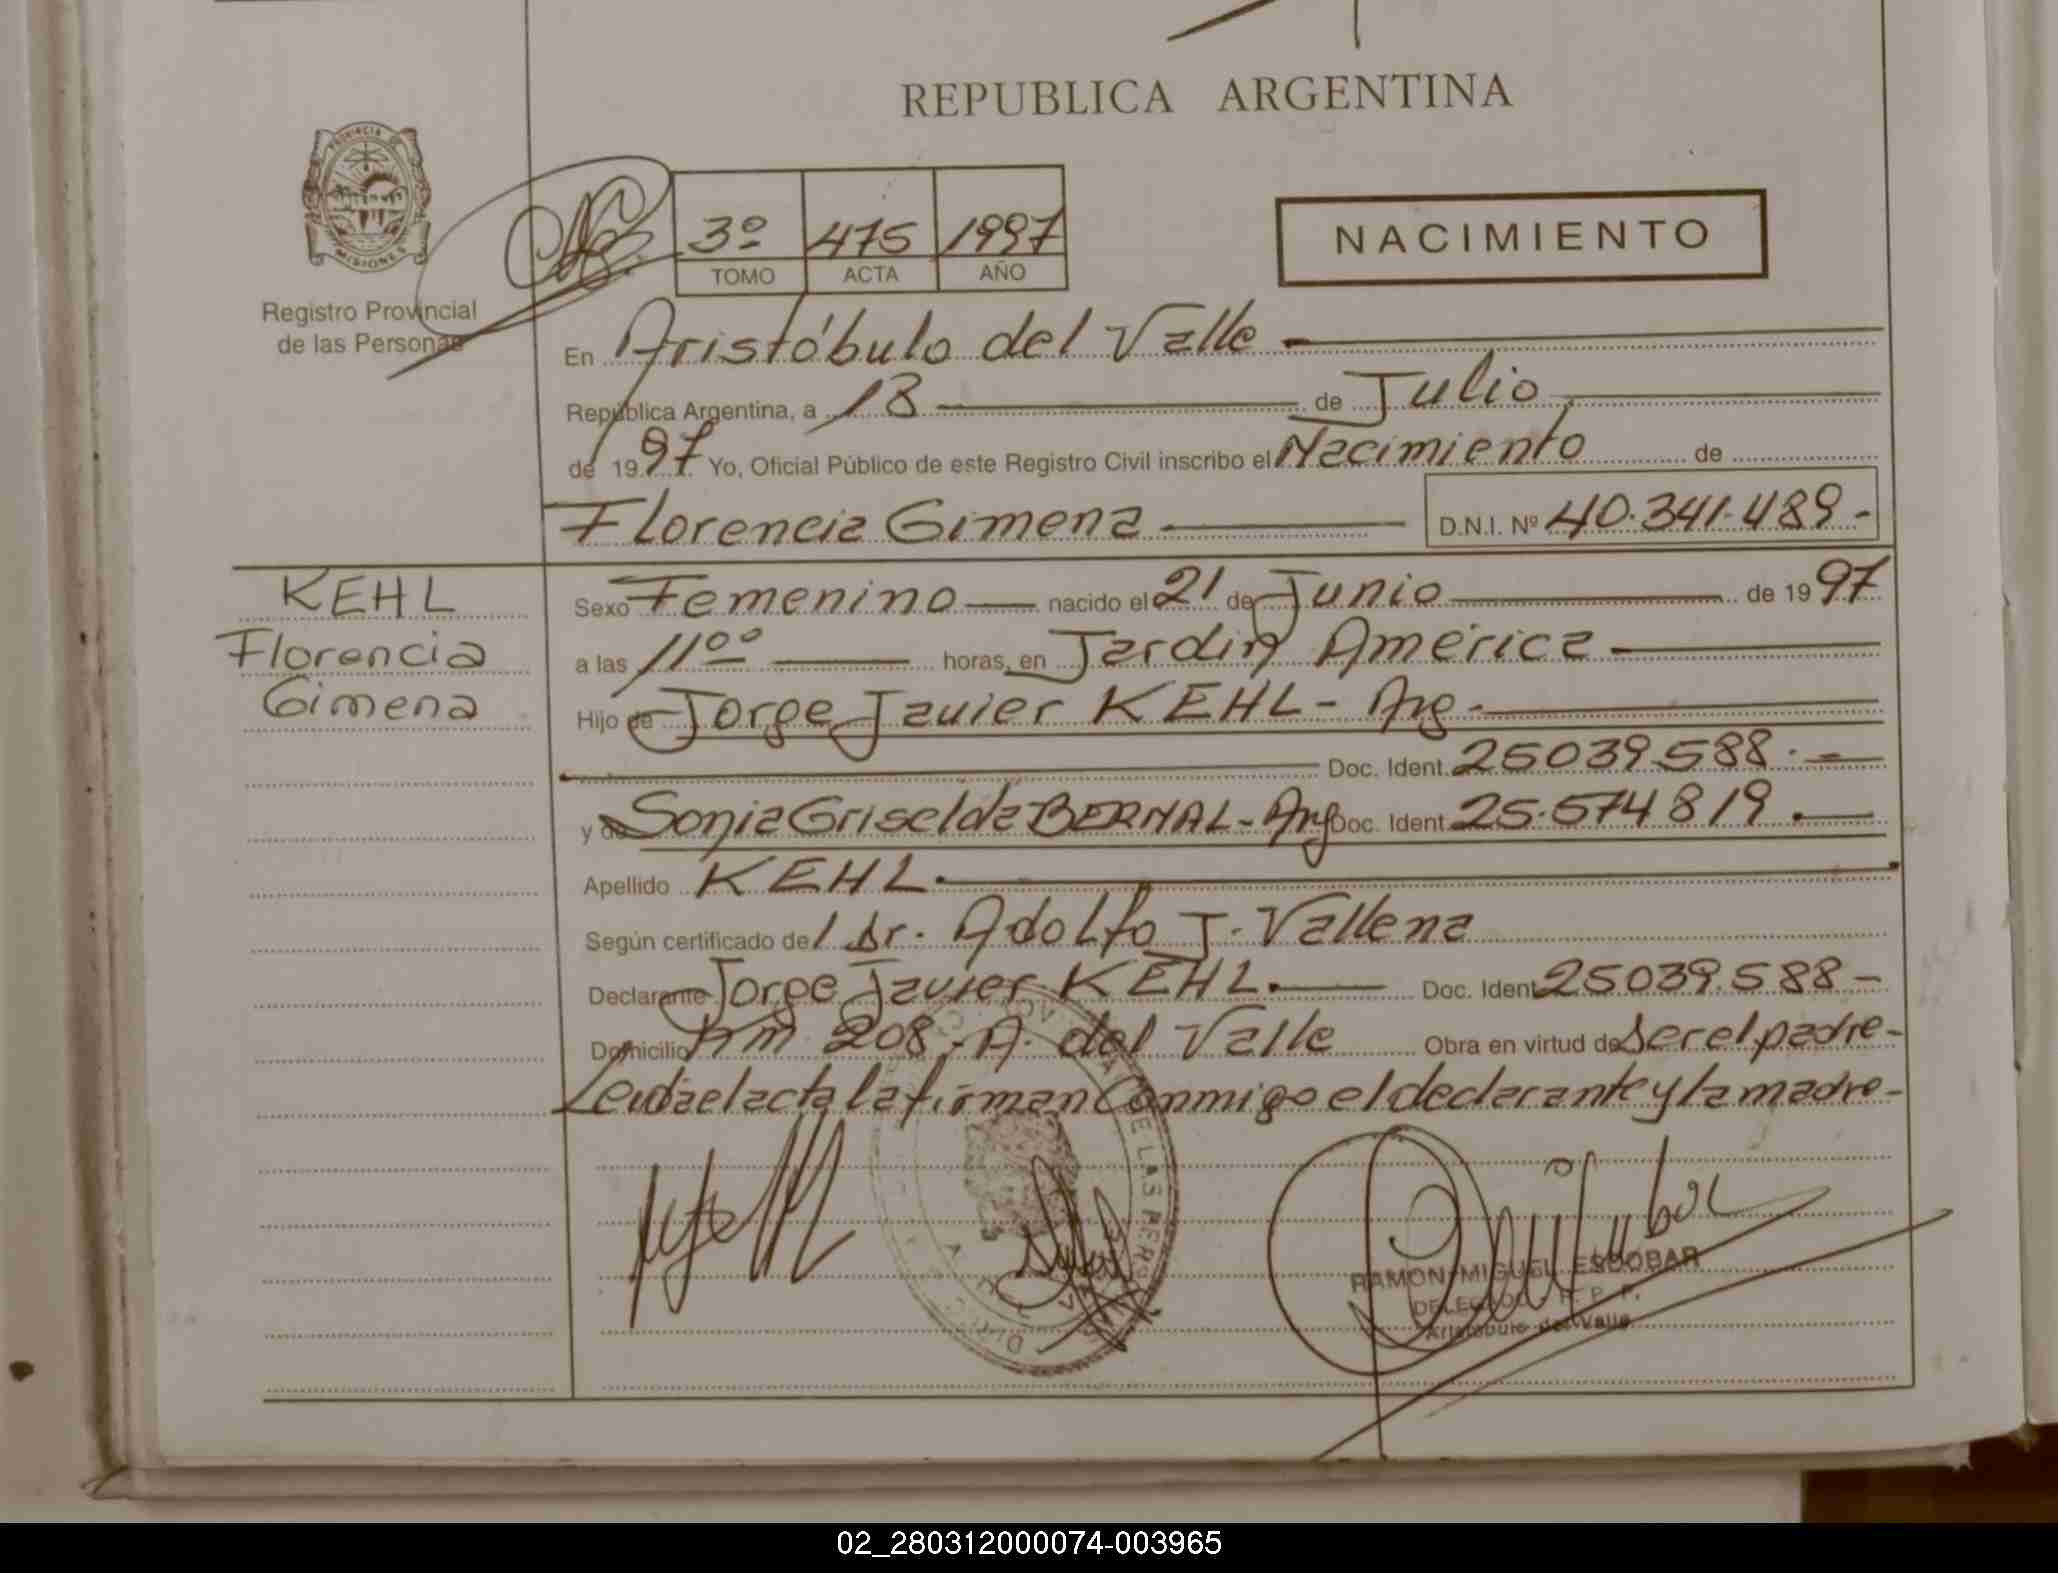 REPUBLICA ARGENTINA
PROVINCIA DE MISIONES
Registro Provincial
de las Personas
3º 475 1997
TOMO ACTA AÑO
NACIMIENTO
En Aristóbulo del Valle
República Argentina, a 18 de Julio
de 1997 Yo, Oficial Público de este Registro Civil inscribo el Nacimiento de
Florencia Gimena D.N.I. Nº 40.341.489-
KEHL
Florencia
Gimena
Sexo Femenino nacido el 21 de Junio de 1997
a las 11ºº horas, en Jardín América
Hijo de Jorge Javier KEHL - Arg.
Doc. Ident. 25039.588.-
y de Sonia Griselda BERNAL - Arg Doc. Ident. 25.574819.
Apellido KEHL.
Según certificado del Dr. Adolfo J. Vallena
Declarante Jorge Javier KEHL. Doc. Ident. 25039.588-
Domicilio Km 208 - A. del Valle Obra en virtud de Ser el padre-
Leida el acta la firman Conmigo el declarante y la madre-
RAMON MIGUEL ESCOBAR
DELEGADO R. P. P.
Aristóbulo del Valle
02_280312000074-003965